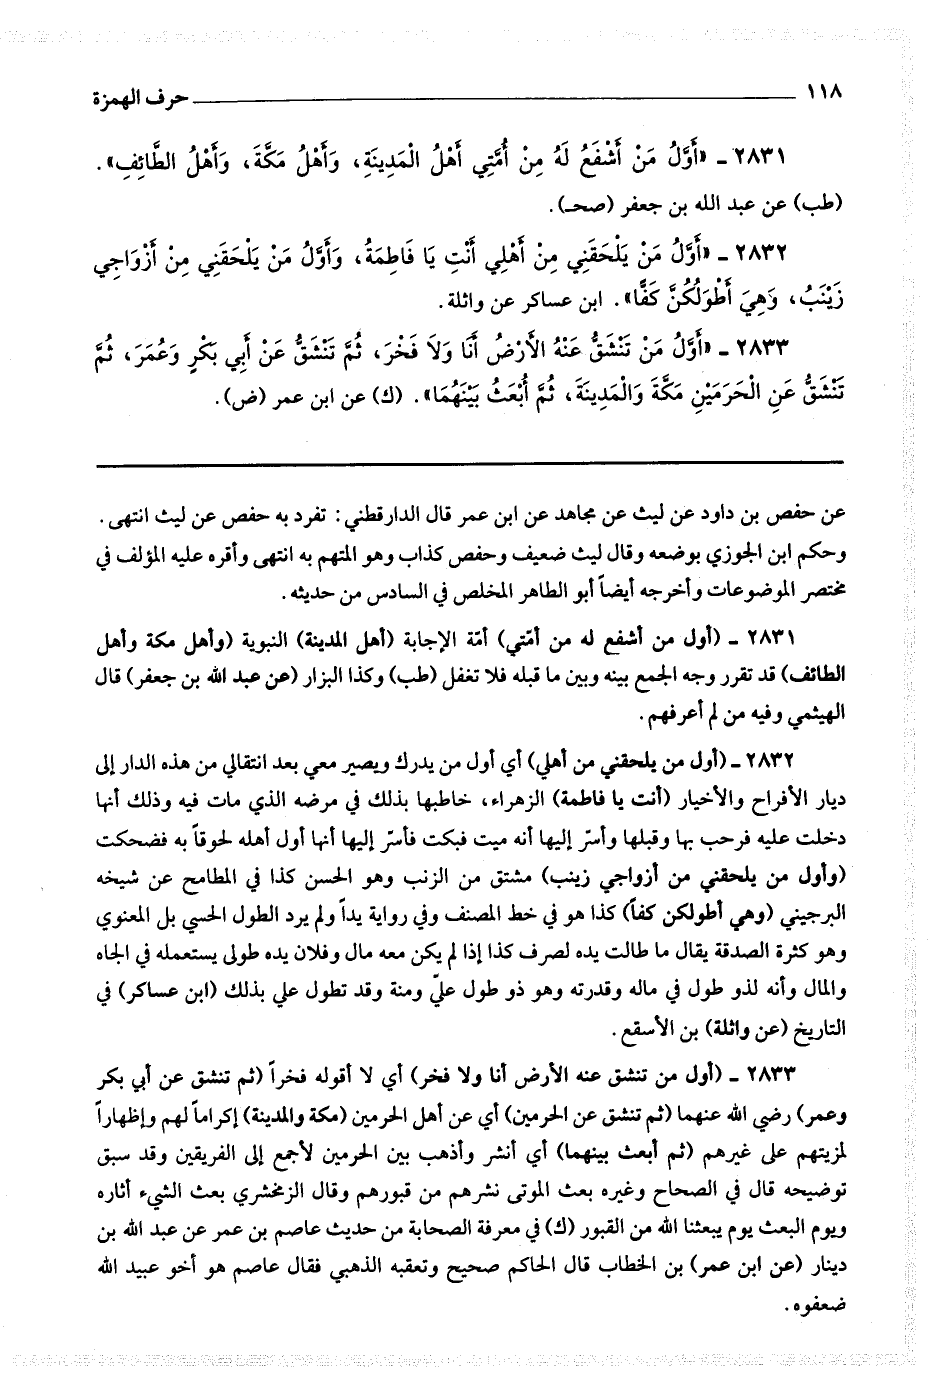 ١١٨ حرف الهمزة
٢٨٣١ ـ «أَوَّلُ مَنْ أَشْفَعُ لَهُ مِنْ أُمَّتِي أَهْلُ الْمَدِينَةِ، وَأَهْلُ مَكَّةَ، وَأَهْلُ الطَّائِفِ».
(طب) عن عبد الله بن جعفر (صحـ).
٢٨٣٢ ـ «أَوَّلُ مَنْ يَلْحَقُنِي مِنْ أَهْلِي أَنْتِ يَا فَاطِمَةُ، وَأَوَّلُ مَنْ يَلْحَقُنِي مِنْ أَزْوَاجِي
زَيْنَبُ، وَهِيَ أَطْوَلُكُنَّ كَفًّا». ابن عساكر عن واثلة.
٢٨٣٣ ـ «أَوَّلُ مَنْ تَنْشَقُّ عَنْهُ الأَرْضُ أَنَا وَلاَ فَخْرَ، ثُمَّ تَنْشَقُّ عَنْ أَبِي بَكْرٍ وَعُمَرَ، ثُمَّ
تَنْشَقُّ عَنِ الْحَرَمَيْنِ مَكَّةَ وَالْمَدِينَةَ، ثُمَّ أُبْعَثُ بَيْنَهُمَا». (ك) عن ابن عمر (ض).
عن حفص بن داود عن ليث عن مجاهد عن ابن عمر قال الدارقطني: تفرد به حفص عن ليث انتهى.
وحكم ابن الجوزي بوضعه وقال ليث ضعيف وحفص كذاب وهو المتهم به انتهى وأقره عليه المؤلف في
مختصر الموضوعات وأخرجه أيضاً أبو الطاهر المخلص في السادس من حديثه.
٢٨٣١ ـ (أول من أشفع له من أمّتي) أمّة الإجابة (أهل المدينة) النبوية (وأهل مكة وأهل
الطائف) قد تقرر وجه الجمع بينه وبين ما قبله فلا تغفل (طب) وكذا البزار (عن عبد الله بن جعفر) قال
الهيثمي وفيه من لم أعرفهم.
٢٨٣٢ ـ (أول من يلحقني من أهلي) أي أول من يدرك ويصير معي بعد انتقالي من هذه الدار إلى
ديار الأفراح والأخيار (أنت يا فاطمة) الزهراء، خاطبها بذلك في مرضه الذي مات فيه وذلك أنها
دخلت عليه فرحب بها وقبلها وأسرّ إليها أنه ميت فبكت فأسرّ إليها أنها أول أهله لحوقاً به فضحكت
(وأول من يلحقني من أزواجي زينب) مشتق من الزنب وهو الحسن كذا في المطامح عن شيخه
البرجيني (وهي أطولكن كفاً) كذا هو في خط المصنف وفي رواية يداً ولم يرد الطول الحسي بل المعنوي
وهو كثرة الصدقة يقال ما طالت يده لصرف كذا إذا لم يكن معه مال وفلان يده طولى يستعمله في الجاه
والمال وأنه لذو طول في ماله وقدرته وهو ذو طول عليّ ومنة وقد تطول علي بذلك (ابن عساكر) في
التاريخ (عن واثلة) بن الأسقع.
٢٨٣٣ ـ (أول من تنشق عنه الأرض أنا ولا فخر) أي لا أقوله فخراً (ثم تنشق عن أبي بكر
وعمر) رضي الله عنهما (ثم تنشق عن الحرمين) أي عن أهل الحرمين (مكة والمدينة) إكراماً لهم وإظهاراً
لمزيتهم على غيرهم (ثم أبعث بينهما) أي أنشر وأذهب بين الحرمين لأجمع إلى الفريقين وقد سبق
توضيحه قال في الصحاح وغيره بعث الموتى نشرهم من قبورهم وقال الزمخشري بعث الشيء أثاره
ويوم البعث يوم يبعثنا الله من القبور (ك) في معرفة الصحابة من حديث عاصم بن عمر عن عبد الله بن
دينار (عن ابن عمر) بن الخطاب قال الحاكم صحيح وتعقبه الذهبي فقال عاصم هو أخو عبيد الله
ضعفوه.